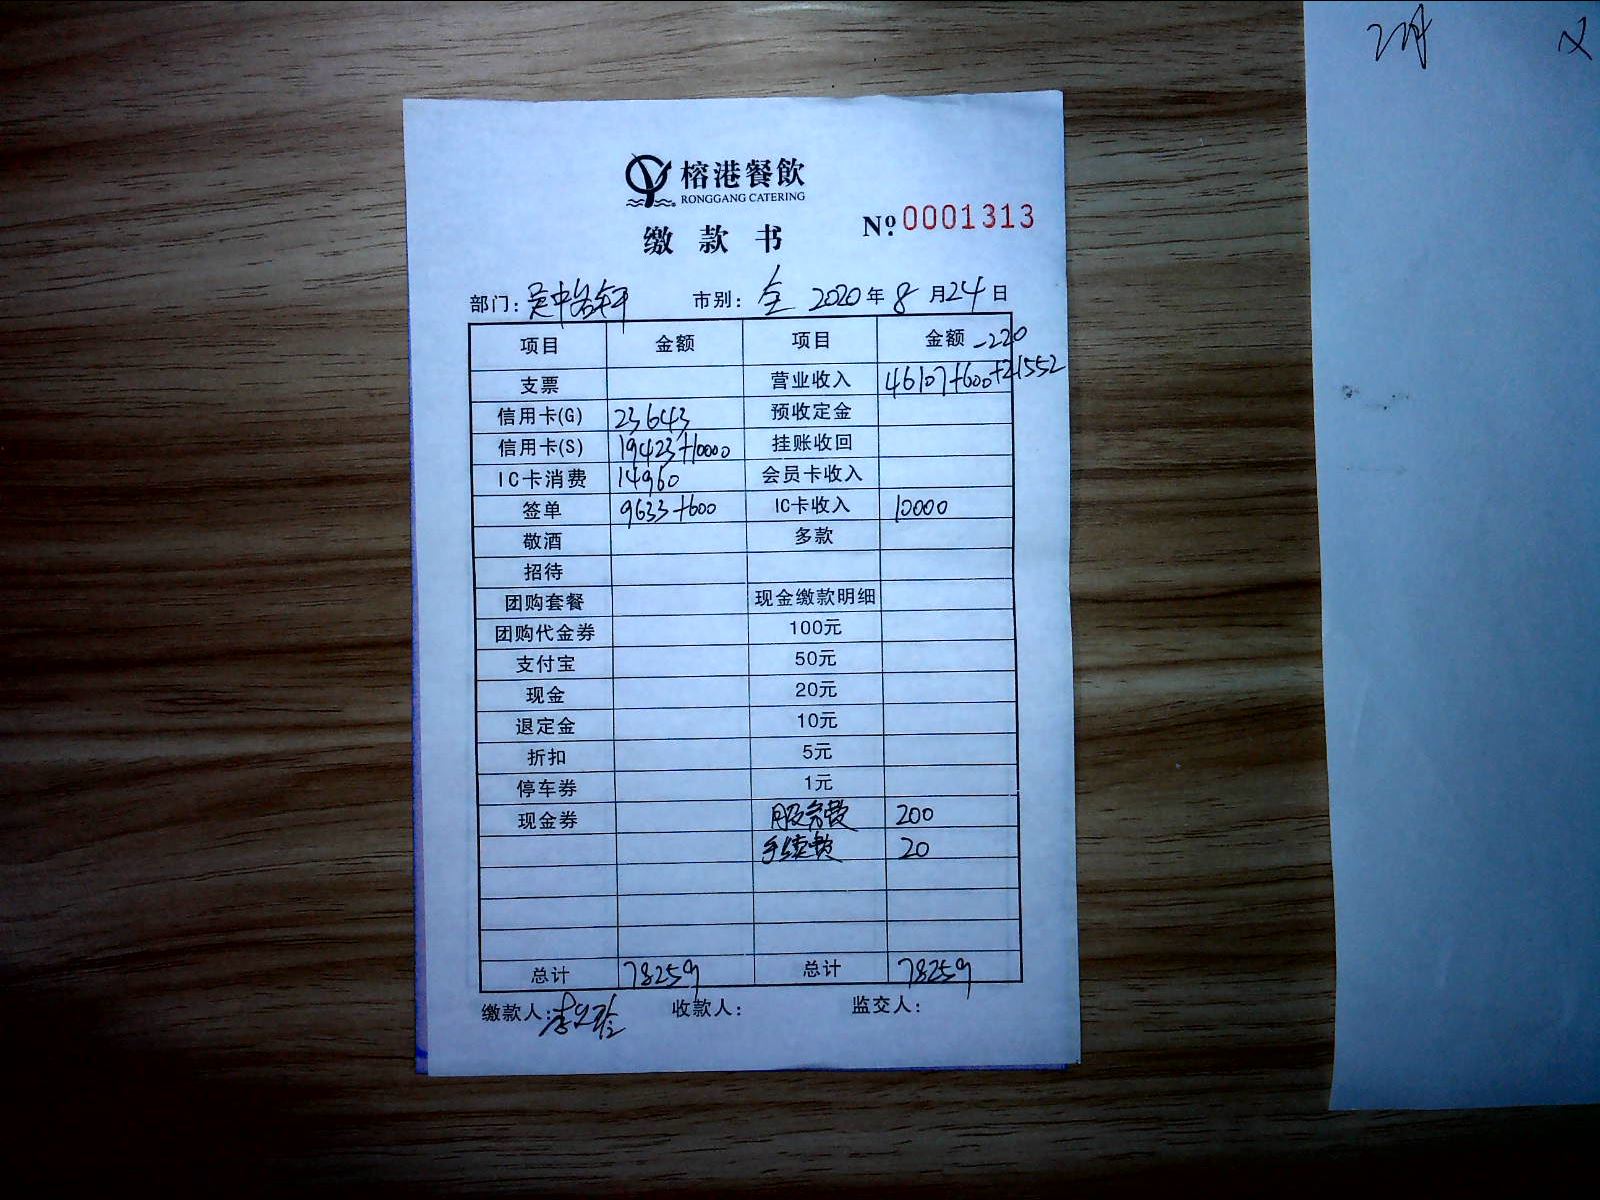 榕港餐飲
RONGGANG CATERING
缴款书 Nº 0001313
部门: 市别: 全 2020年8月24日
项目 金额 项目 金额 -220
支票 营业收入 46107+600+21552
信用卡(G) 23643 预收定金
信用卡(S) 19423+10000 挂账收回
IC卡消费 14960 会员卡收入
签单 9633+600 IC卡收入 10000
敬酒 多款
招待
团购套餐 现金缴款明细
团购代金券 100元
支付宝 50元
现金 20元
退定金 10元
折扣 5元
停车券 1元
现金券 服务费 200
手续费 20
总计 78259 总计 78259
缴款人: 收款人: 监交人: